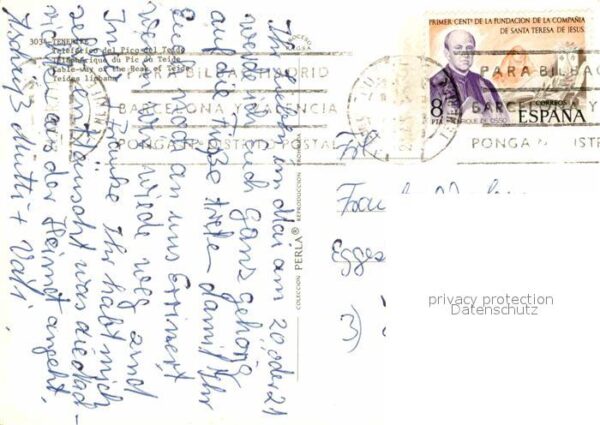 3034 TENERIFE
Teleférico del Pico del Teide
Téléphérique du Pic du Teide
Cable-way of the Peak of Teide
Teides linbana
COLECCION PERLA® REPRODUCCION PROHIBIDA
PRIMER CENTº DE LA FUNDACION DE LA COMPAÑIA
DE SANTA TERESA DE JESUS.
8
PTA
ENRIQUE DE OSSO
CORREOS
ESPAÑA
PARA BILBAO MADRID
BARCELONA Y VALENCIA
PONGA Nº DISTRITO POSTAL
PARA BILBAO
BARCELONA Y
PONGA Nº DISTR
im Mai am 20. oder 21
werde ich Euch ganz gehörig
auf die Füße treten damit Ihr
Euch mal an uns Erinnert
wenn wir wieder weg sind
Ich Ihr habt mich
was die
aus der Heimat angeht.
Mutti + Vati.
Frau
Egges
3)
privacy protection
Datenschutz